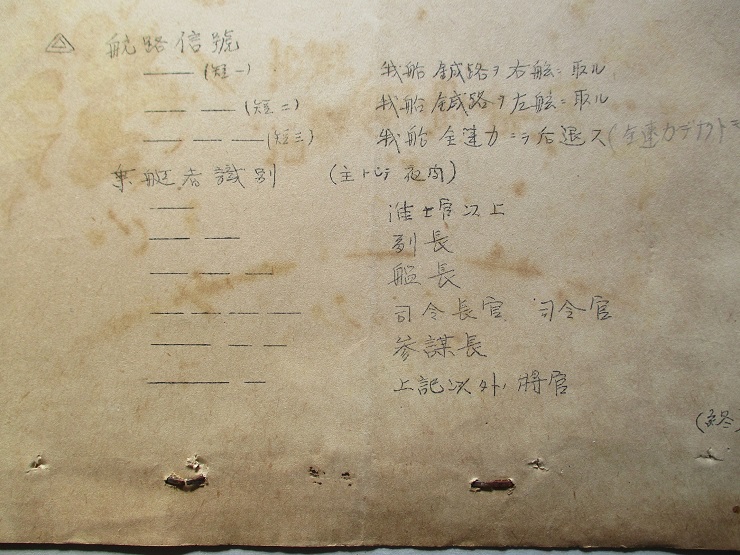 航路信號
(短一) 我船鍼路ヲ右舷ニ取ル
(短二) 我船鍼路ヲ左舷ニ取ル
(短三) 我船全速力ニテ后退ス(全速力デナクトモ
乗艇者識別 (主トシテ夜間)
准士官以上
副長
艦長
司令長官 司令官
参謀長
上記以外ノ將官
(終)